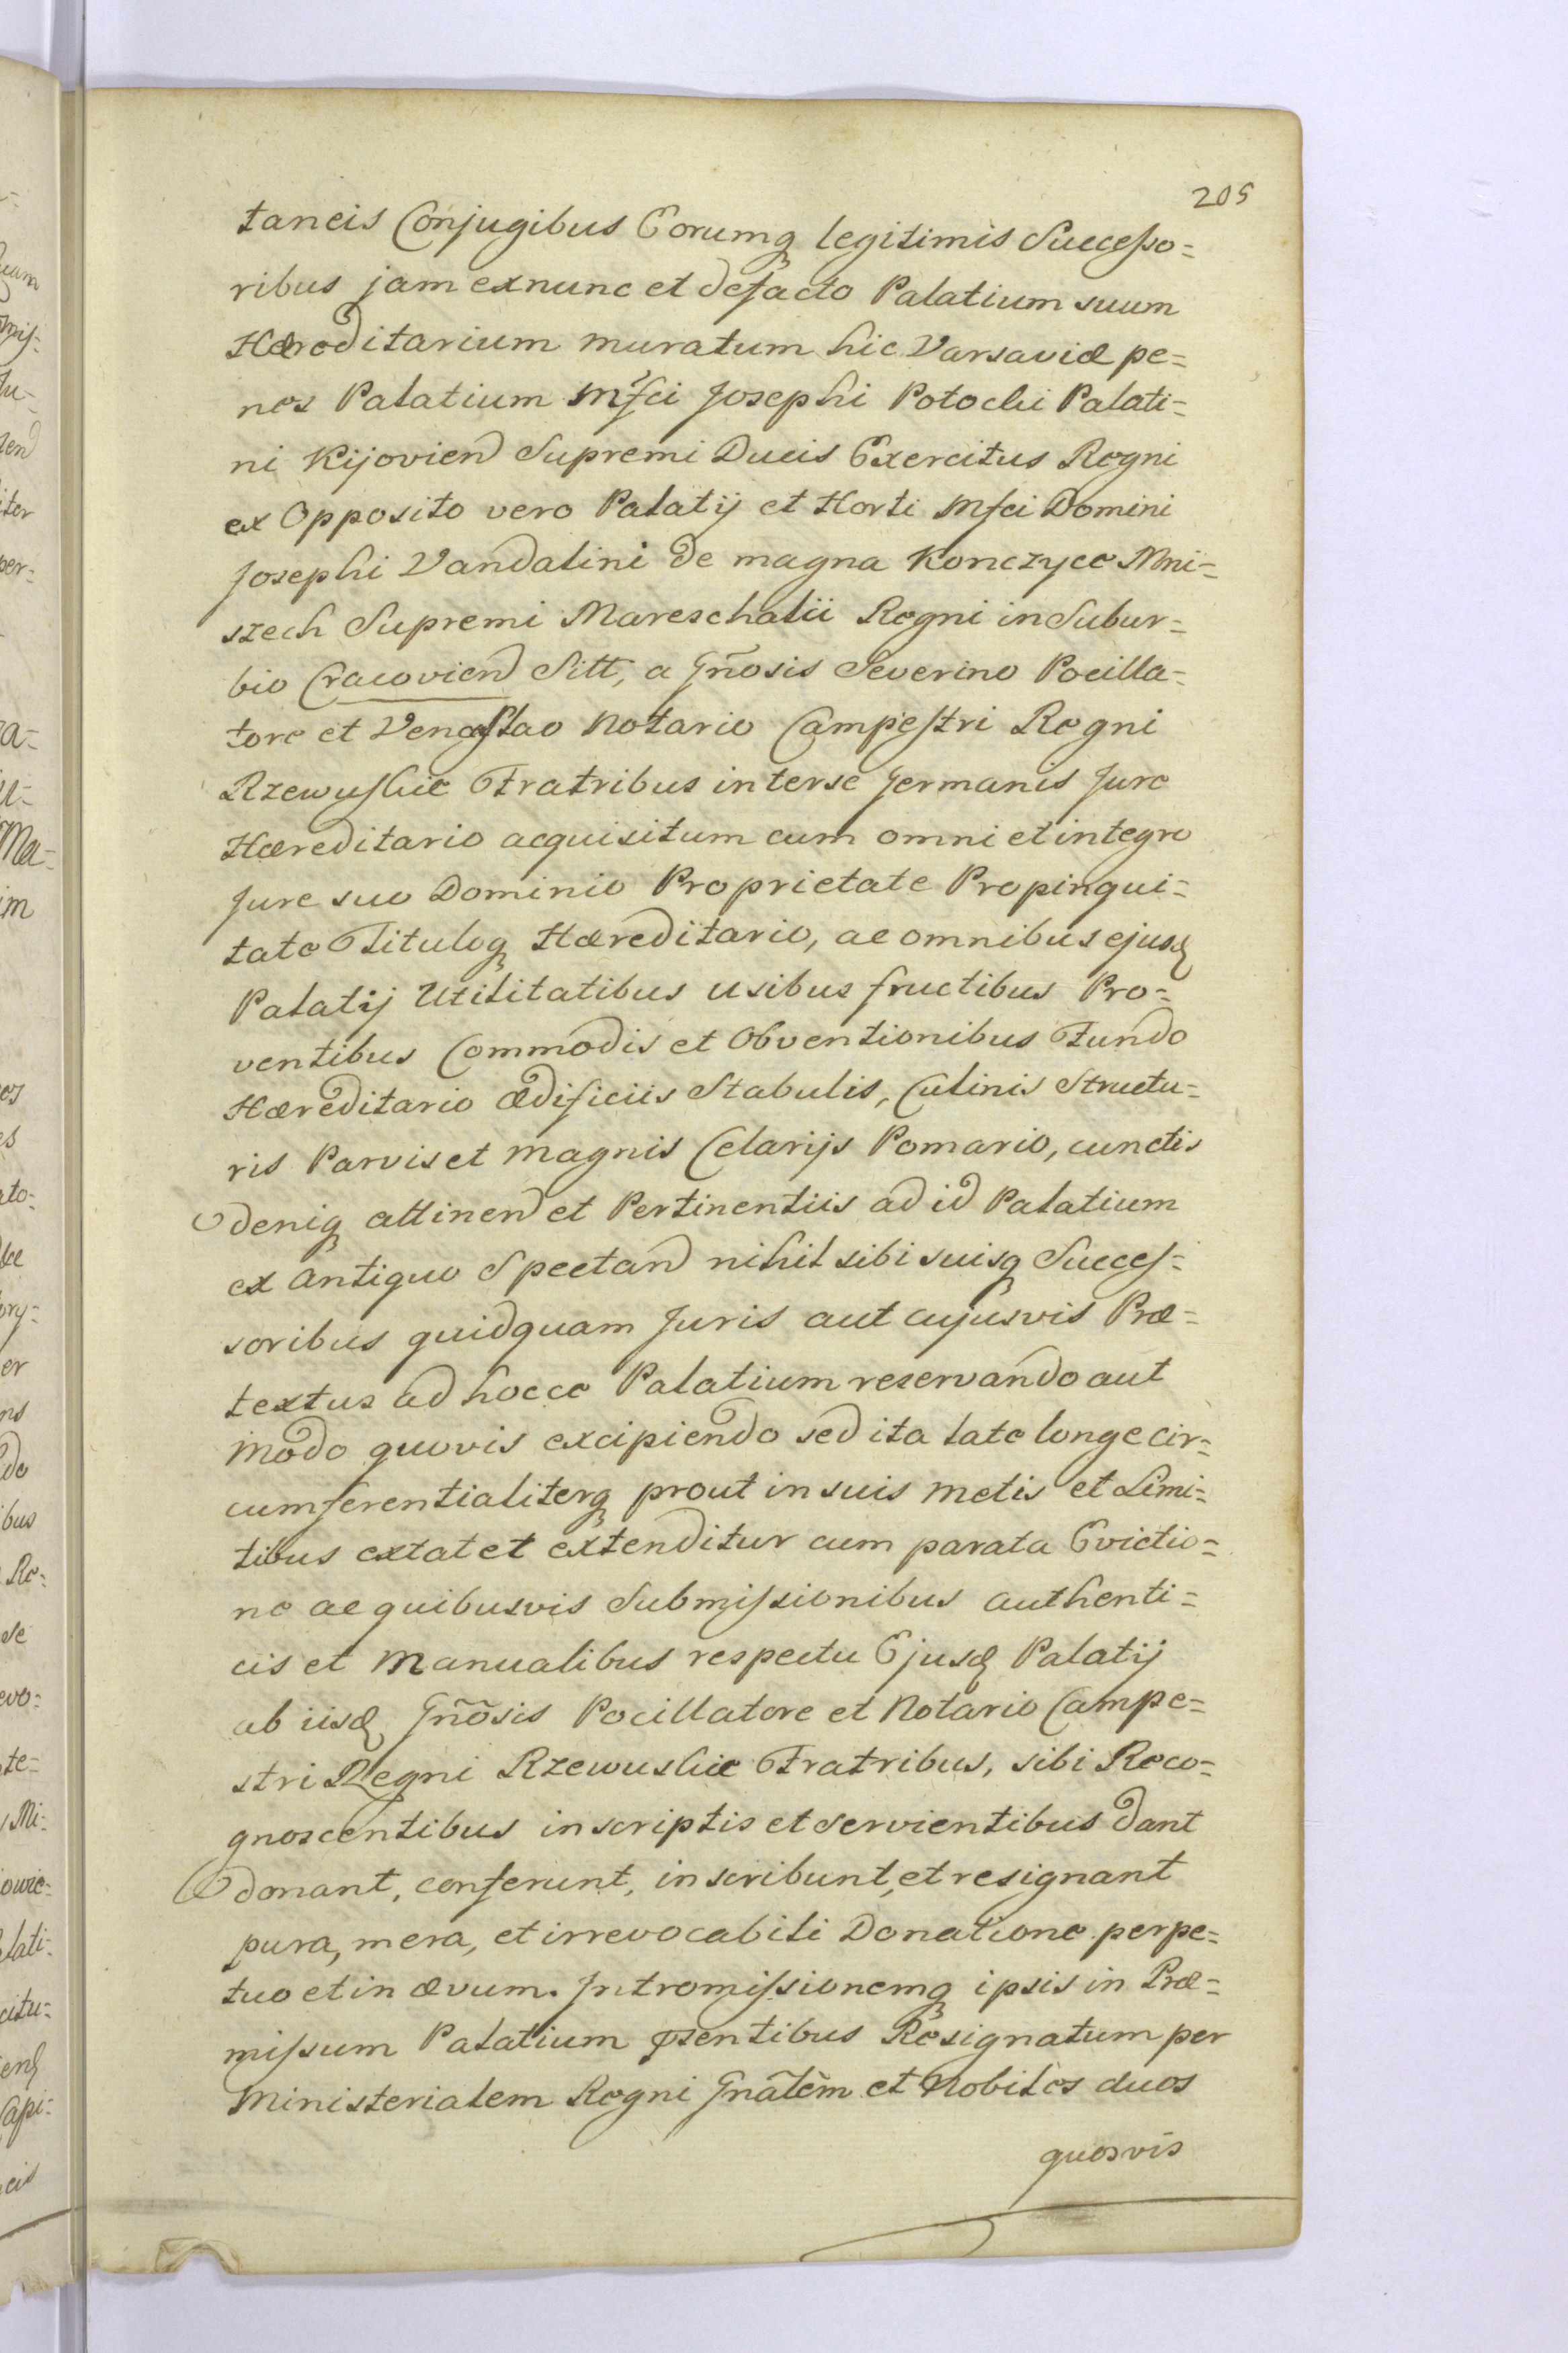 205
taneis Conjugibus Eorumq legitimis Successo=
ribus jam exnunc et defacto Palatium suum
Hæreditarium muratum hic Varsaviæ pe=
nes Palatium Mfci Josephi Potocki Palati=
ni Kijovien Supremi Ducis Exercitus Regni
ex Opposito vero Palatij et Horti Mfci Domini
Josephi Vandalini de magna Konczyce Mni=
szech Supremi Mareschalii Regni in Subur=
bio Cracovien Sitt, a Gñosis Severino Pocilla=
tore et Venceslao Notario Campestri Regni
Rzewuskie Fratribus interse Germanis Jure
Hæreditario acquisitum cum omni et integro
Jure suo Dominio Proprietate Propinqui=
tate Tituloq Hæreditario, ac omnibus ejusd
Palatij Utilitatibus usibus fructibus Pro=
ventibus Commodis et Obventionibus Fundo
Hæreditario ædificiis Stabulis, Culinis Structu=
ris Parvis et magnis Celarijs Pomario, cunctis
deniq attinen et Pertinentiis ad id Palatium
ex antiquo Spectan nihil sibi suisq Succes=
soribus quidquam Juris aut cujusvis Præ=
textus ad hocce Palatium reservando aut
modo quovis excipiendo sed ita late longe cir=
cumferentialiterq prout in suis metis et Limi=
tibus extat et extenditur cum parata Evictio=
ne ac quibusvis Submissionibus authenti=
cis et Manualibus respectu Ejusd Palatij
ab iisd Gñõsis Pocillatore et Notario Campe=
stri Regni Rzewuskie Fratribus, sibi Reco=
gnoscentibus inscriptis et servientibus dant
donant, conferunt, inscribunt, et resignant
pura, mera, et irrevocabili Donatione perpe=
tuo et in ævum. Intromissionemq ipsis in Præ=
missum Palatium psentibus Resignatum per
Ministerialem Regni Gnãlẽm et Nobiles duos
quosvis